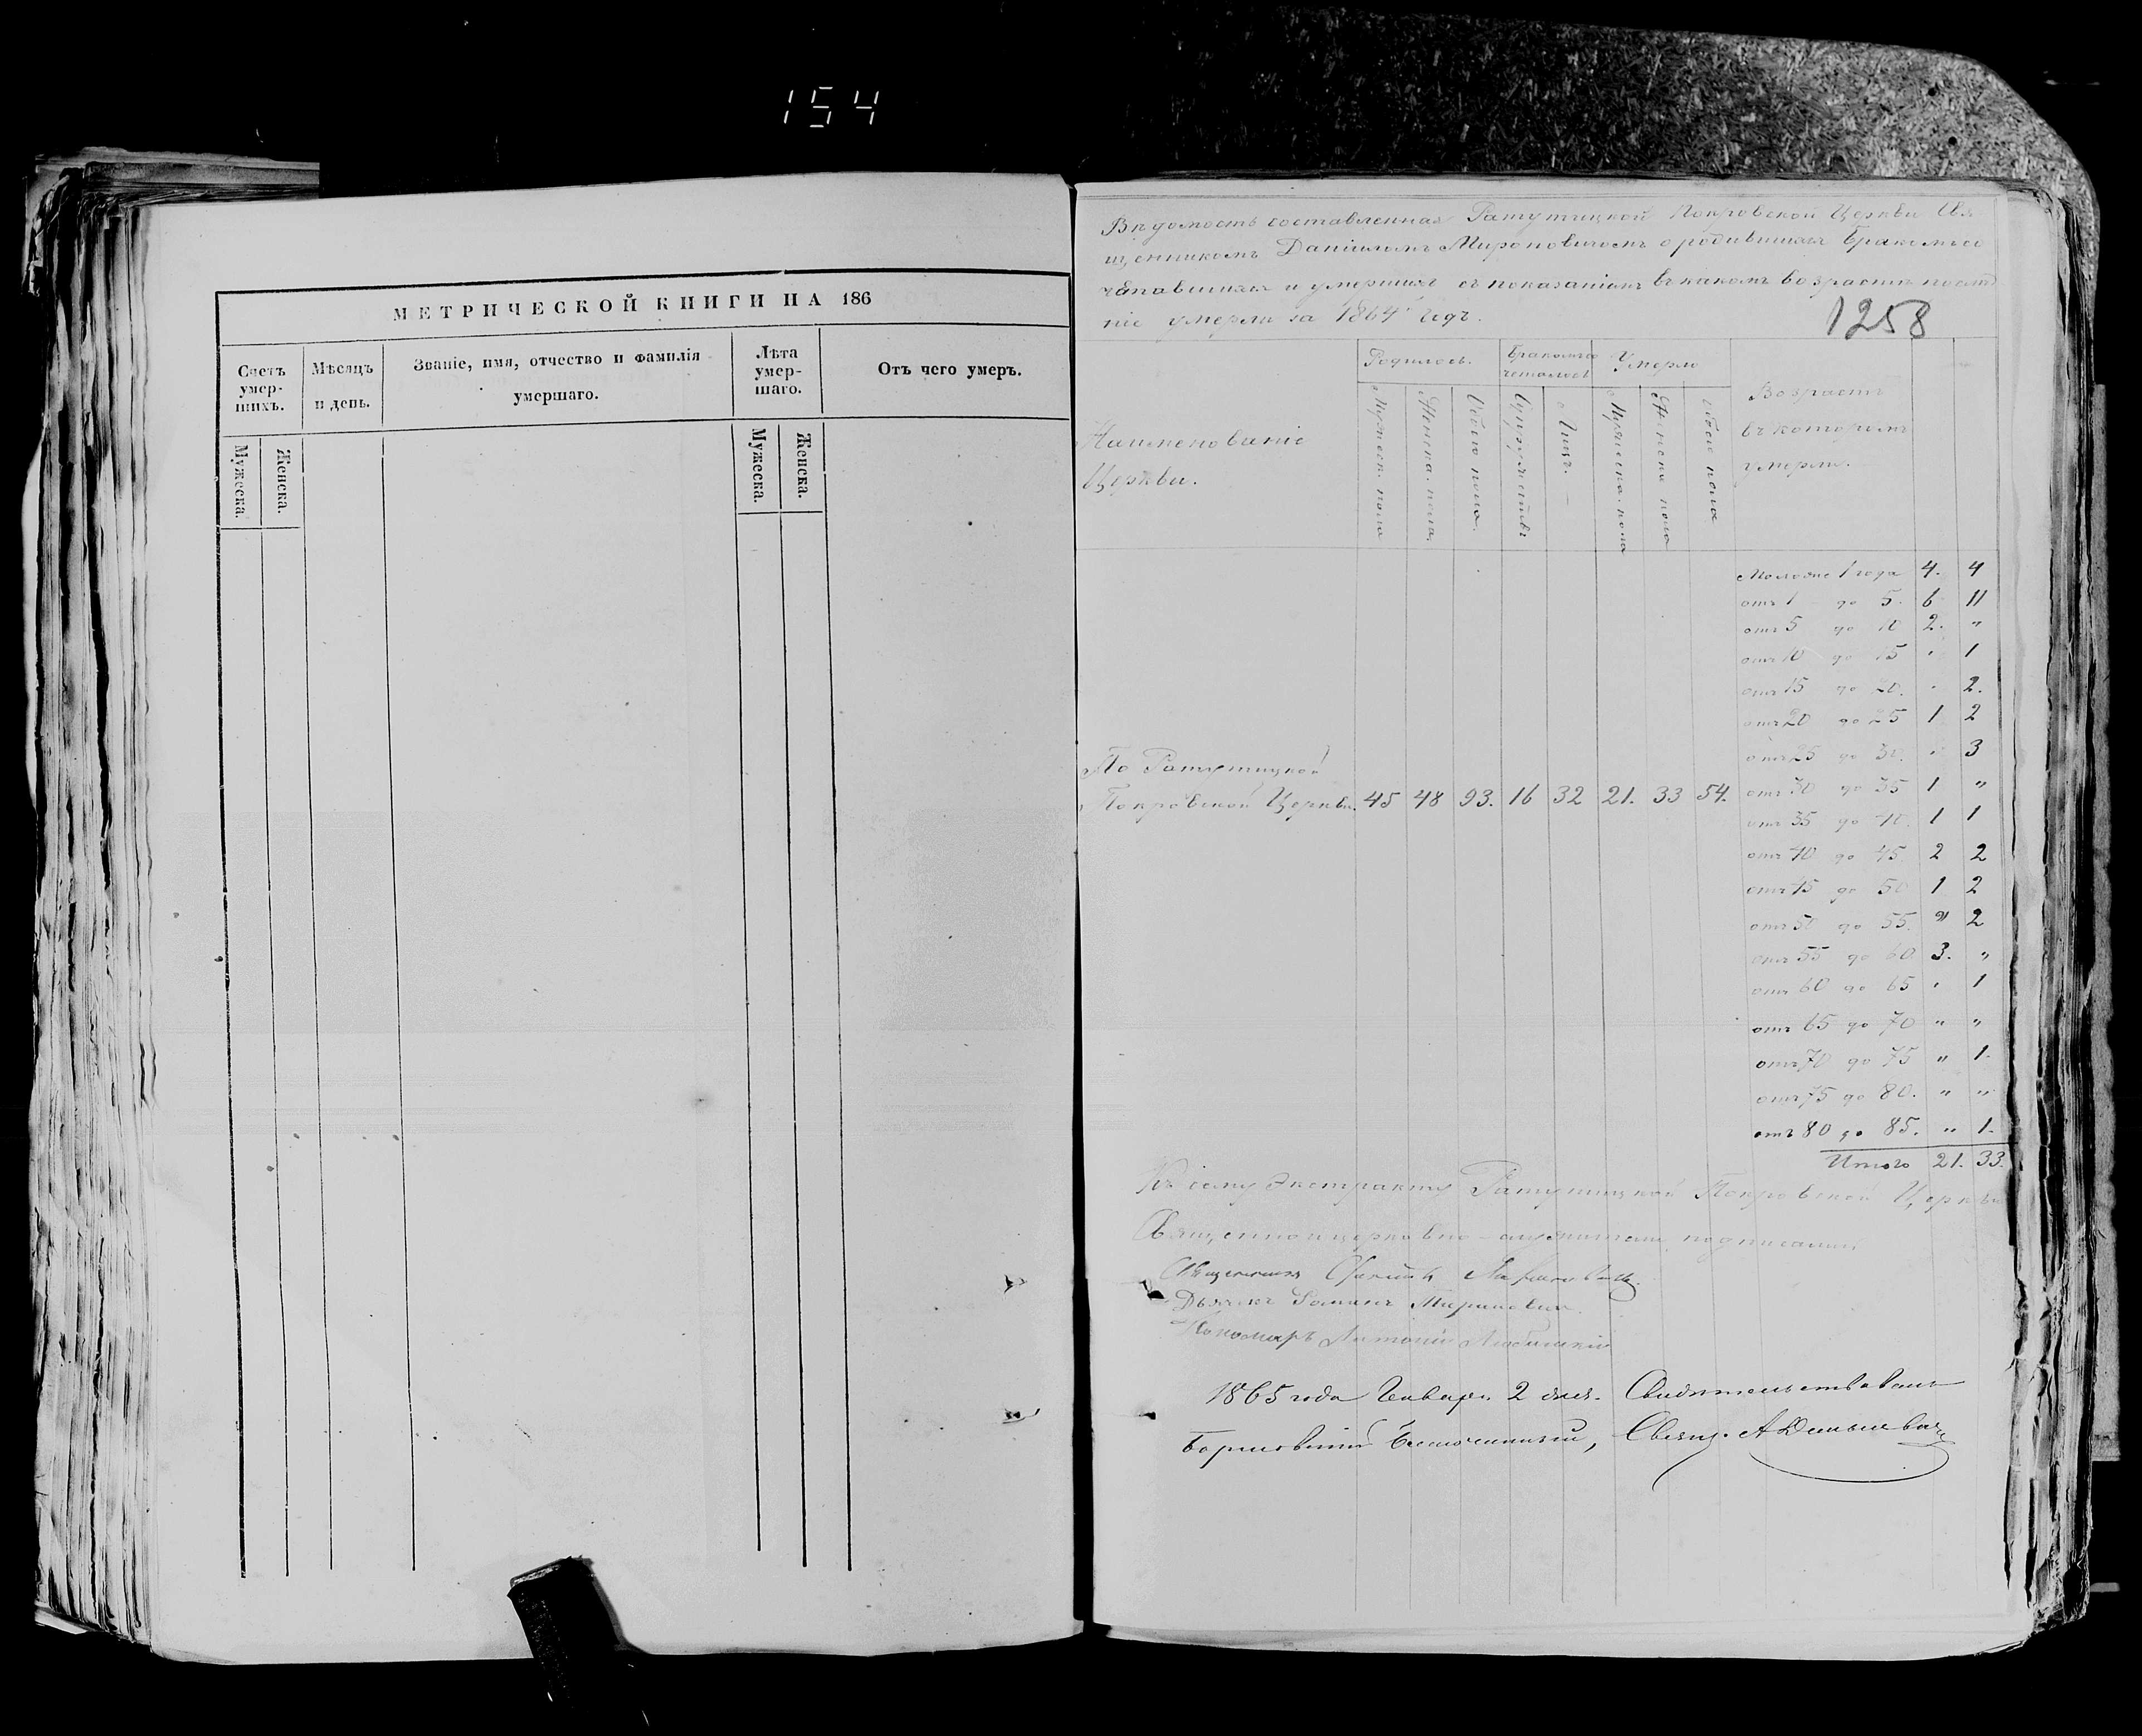 154
МЕТРИЧЕСКОЙ КНИГИ НА 186
Счетъ умер-шихъ.
Мѣсяцъ и день.
Званіе, имя, отчество и фамилія умершаго.
Лѣта умер-шаго.
Отъ чего умеръ.
Мужеска.
Женска.
Мужеска.
Женска.
Вѣдомость составленная Ратутицкой Покровской Церкви Свя
щенникомъ Даніиломъ Мироновичемъ о родившихся бракомъ со
четавшихся и умершихъ съ показаніемъ въ какомъ возрастѣ послѣд
ніе умерли за 1864 годъ.
1258
Наименованіе
Церкви.
Родилось.
Бракомъ со
четалось
Умерло
Возрастъ
въ которомъ
умерли.
Мужеск. пола
Женска. пола.
Обоего пола.
Супружествъ
Лицъ. –
Мужеска. пола
Женска пола
Обоего пола
Моложе 1 года 4. 4
отъ 1 до 5. 6 11
отъ 5 до 10 2. "
отъ 10 до 15 " 1
отъ 15 до 20. " 2.
отъ 20 до 25 1 2
отъ 25 до 30. " 3
По Ратутицкой
Покровской Церкви. 45 48 93. 16 32 21. 33 54.
отъ 30 до 35 1 "
отъ 35 до 40. 1 1
отъ 40 до 45. 2 2
отъ 45 до 50 1 2
отъ 50 до 55. " 2
отъ 55 до 60 3. "
отъ 60 до 65 " 1
отъ 65 до 70 " "
отъ 70 до 75 " 1.
отъ 75 до 80. " "
отъ 80 до 85. " 1.
Итого 21. 33.
Къ сему Экстракту Ратутицкой Покровской Церкви
Священно и церковно-служители подписались
Священникъ
Дьячекъ Романъ Мироновичъ.
Пономарь Антоній
1865 года Января 2 дня. Свидѣтельствовалъ
Борисовскій Благочинный, Свящ.